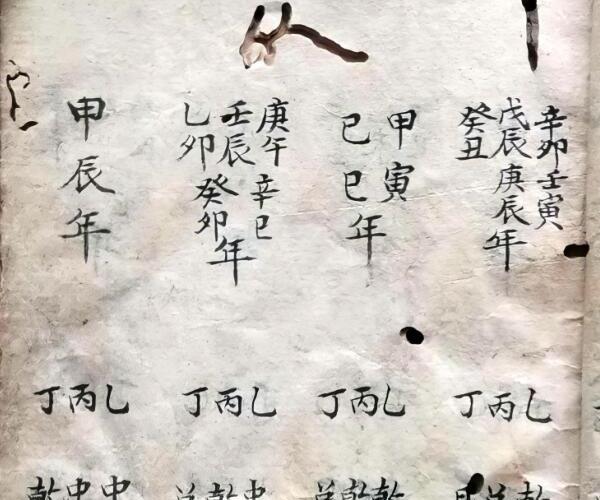 辛卯壬寅
戊辰庚辰年
癸丑
甲寅
己巳年
庚午辛巳
壬辰癸卯年
乙卯
甲辰年
乙丙丁
乙丙丁
乙丙丁
乙丙丁